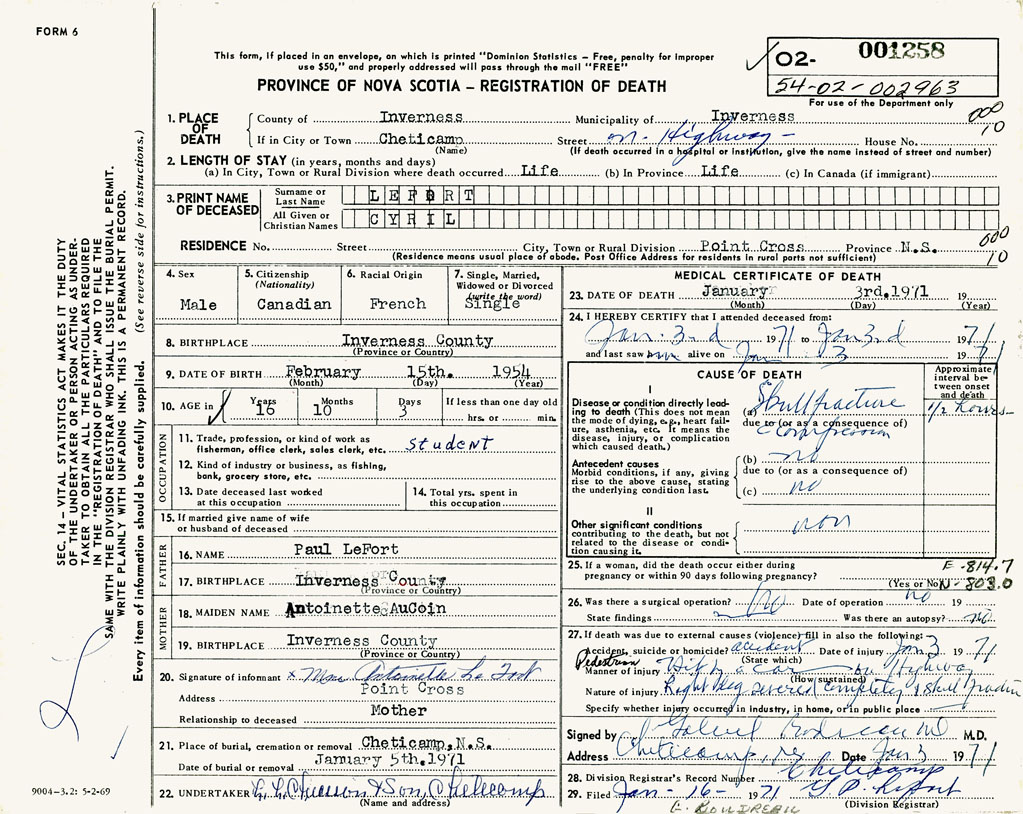 FORM 6
This form, if placed in an envelope, on which is printed "Dominion Statistics – Free, penalty for improper
use $50," and properly addressed will pass through the mail "FREE"
PROVINCE OF NOVA SCOTIA – REGISTRATION OF DEATH
02- 001258
54-02-002963
For use of the Department only
1. PLACE OF DEATH
County of Inverness Municipality of Inverness 000
If in City or Town Cheticamp Street on Highway House No. 10
(Name) (If death occurred in a hospital or institution, give the name instead of street and number)
2. LENGTH OF STAY (in years, months and days)
(a) In City, Town or Rural Division where death occurred Life (b) In Province Life (c) In Canada (if immigrant)
3. PRINT NAME OF DECEASED
Surname or Last Name LEFORT
All Given or Christian Names CYRIL
RESIDENCE No. Street City, Town or Rural Division Point Cross Province N.S. 000
(Residence means usual place of abode. Post Office Address for residents in rural ports not sufficient) 10
4. Sex Male
5. Citizenship (Nationality) Canadian
6. Racial Origin French
7. Single, Married, Widowed or Divorced (write the word) Single
8. BIRTHPLACE Inverness County
(Province or Country)
9. DATE OF BIRTH February 15th. 1954
(Month) (Day) (Year)
10. AGE in Years 16 Months 10 Days 3 If less than one day old
hrs. or min.
OCCUPATION
11. Trade, profession, or kind of work as
fisherman, office clerk, sales clerk, etc. student
12. Kind of industry or business, as fishing,
bank, grocery store, etc.
13. Date deceased last worked
at this occupation
14. Total yrs. spent in
this occupation
15. If married give name of wife
or husband of deceased
FATHER
16. NAME Paul LeFort
17. BIRTHPLACE Inverness County
(Province or Country)
MOTHER
18. MAIDEN NAME Antoinette AuCoin
19. BIRTHPLACE Inverness County
(Province or Country)
20. Signature of informant x Mrs Antoinette Le Fort
Address Point Cross
Relationship to deceased Mother
21. Place of burial, cremation or removal Cheticamp, N.S.
Date of burial or removal January 5th.1971
22. UNDERTAKER & Son, Cheticamp
(Name and address)
MEDICAL CERTIFICATE OF DEATH
23. DATE OF DEATH January 3rd.1971 19
(Month) (Day) (Year)
24. I HEREBY CERTIFY that I attended deceased from:
Jan. 3rd 1971 to Jan 3rd 1971
and last saw him alive on Jan 3 1971
CAUSE OF DEATH
Approximate interval between onset and death
I
Disease or condition directly leading to death (This does not mean the mode of dying, e.g., heart failure, asthenia, etc. It means the disease, injury, or complication which caused death.)
(a) Skull fracture 1/2 hours
due to (or as a consequence of)
compression
Antecedent causes
Morbid conditions, if any, giving rise to the above cause, stating the underlying condition last.
(b) no
due to (or as a consequence of)
(c) no
II
Other significant conditions
contributing to the death, but not related to the disease or condition causing it.
non
25. If a woman, did the death occur either during
pregnancy or within 90 days following pregnancy? E-814.7
(Yes or No) N-803.0
26. Was there a surgical operation? No Date of operation no 19
State findings Was there an autopsy? no
27. If death was due to external causes (violence) fill in also the following:
Accident, suicide or homicide? accident Date of injury Jan 3 1971
(State which)
Pedestrian
Manner of injury Hit by a car on Highway
(How sustained)
Nature of injury Right leg severed completely & skull fracture
Specify whether injury occurred in industry, in home, or in public place
Signed by M.D.
Address Cheticamp, Date Jan 3 1971
28. Division Registrar's Record Number Cheticamp
29. Filed Jan - 16 - 1971
(Division Registrar)
SEC. 14 – VITAL STATISTICS ACT MAKES IT THE DUTY
OF THE UNDERTAKER OR PERSON ACTING AS UNDERTAKER
TO OBTAIN ALL THE PARTICULARS REQUIRED
IN THE "REGISTRATION OF DEATH" AND TO FILE THE
SAME WITH THE DIVISION REGISTRAR WHO SHALL ISSUE THE BURIAL PERMIT.
WRITE PLAINLY WITH UNFADING INK. THIS IS A PERMANENT RECORD.
Every item of Information should be carefully supplied. (See reverse side for instructions.)
9004-3.2: 5-2-69